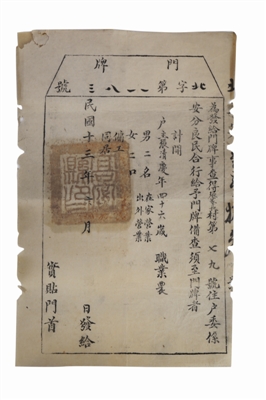 門牌
北字第一一八八三號
為發給門牌事查 村第七九號住戶委係
安分良民合行給予門牌備查須至門牌者
計開
戶主 清慶年四十六歲 職業農
男二名 在家營業
女二口 出外營業
傭工
同居
民國十三年 月 日發給
實貼門首